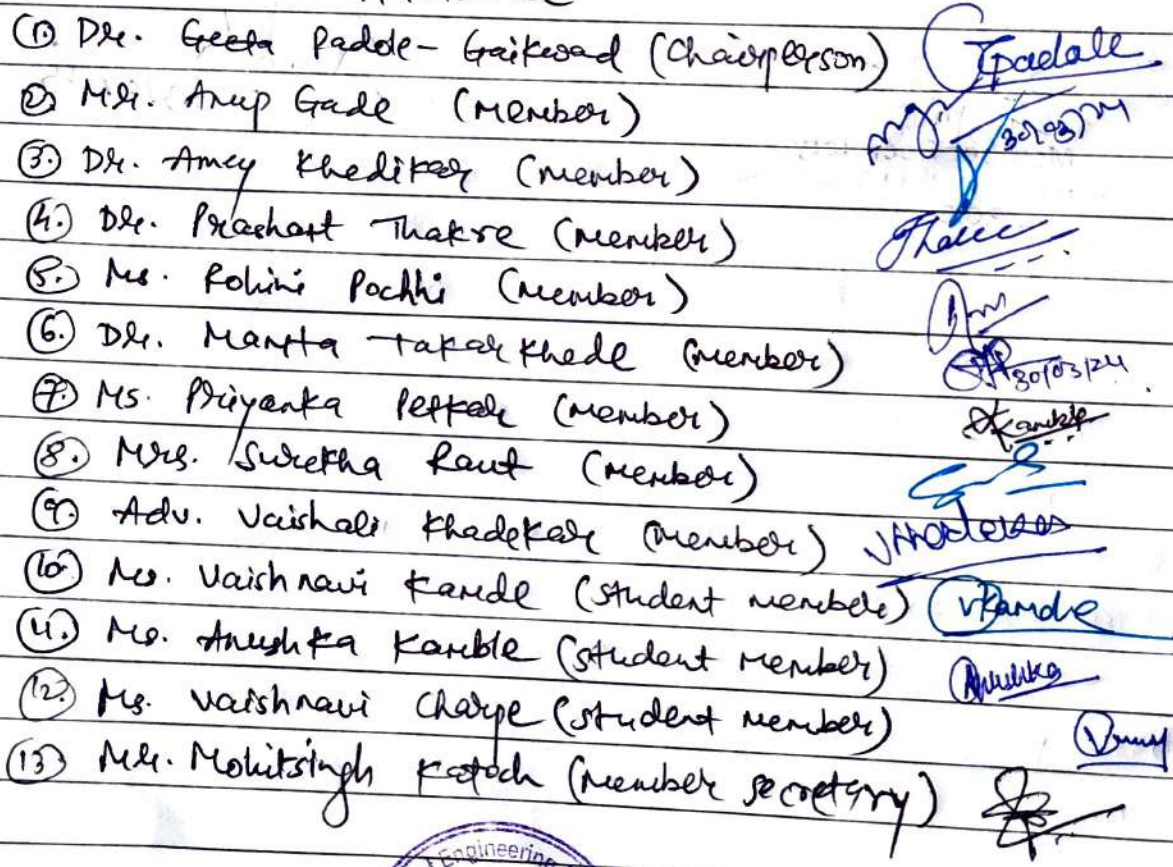 (1) Dr. Geeta Padole - Gaikwad (Chairperson) Gpadole
(2) Mr. Anup Gade (member) 30/03/24
(3.) Dr. Amey Khedikar (member)
(4.) Dr. Prashant Thakre (member)
(5.) Ms. Rohini Pochhi (member)
(6.) Dr. Mamta Takarkhede (member) 30/03/24
(7) Ms. Priyanka Petkar (member)
(8.) Mrs. Surekha Raut (member)
(9.) Adv. Vaishali Khadekar (member)
(10) Ms. Vaishnavi Kamde (student member) VKamde
(11.) Ms. Anushka Kamble (student member) Anushka
(12.) Ms. Vaishnavi Charpe (student member)
(13) Mr. Mohitsingh Katoch (member secretary)
Engineering